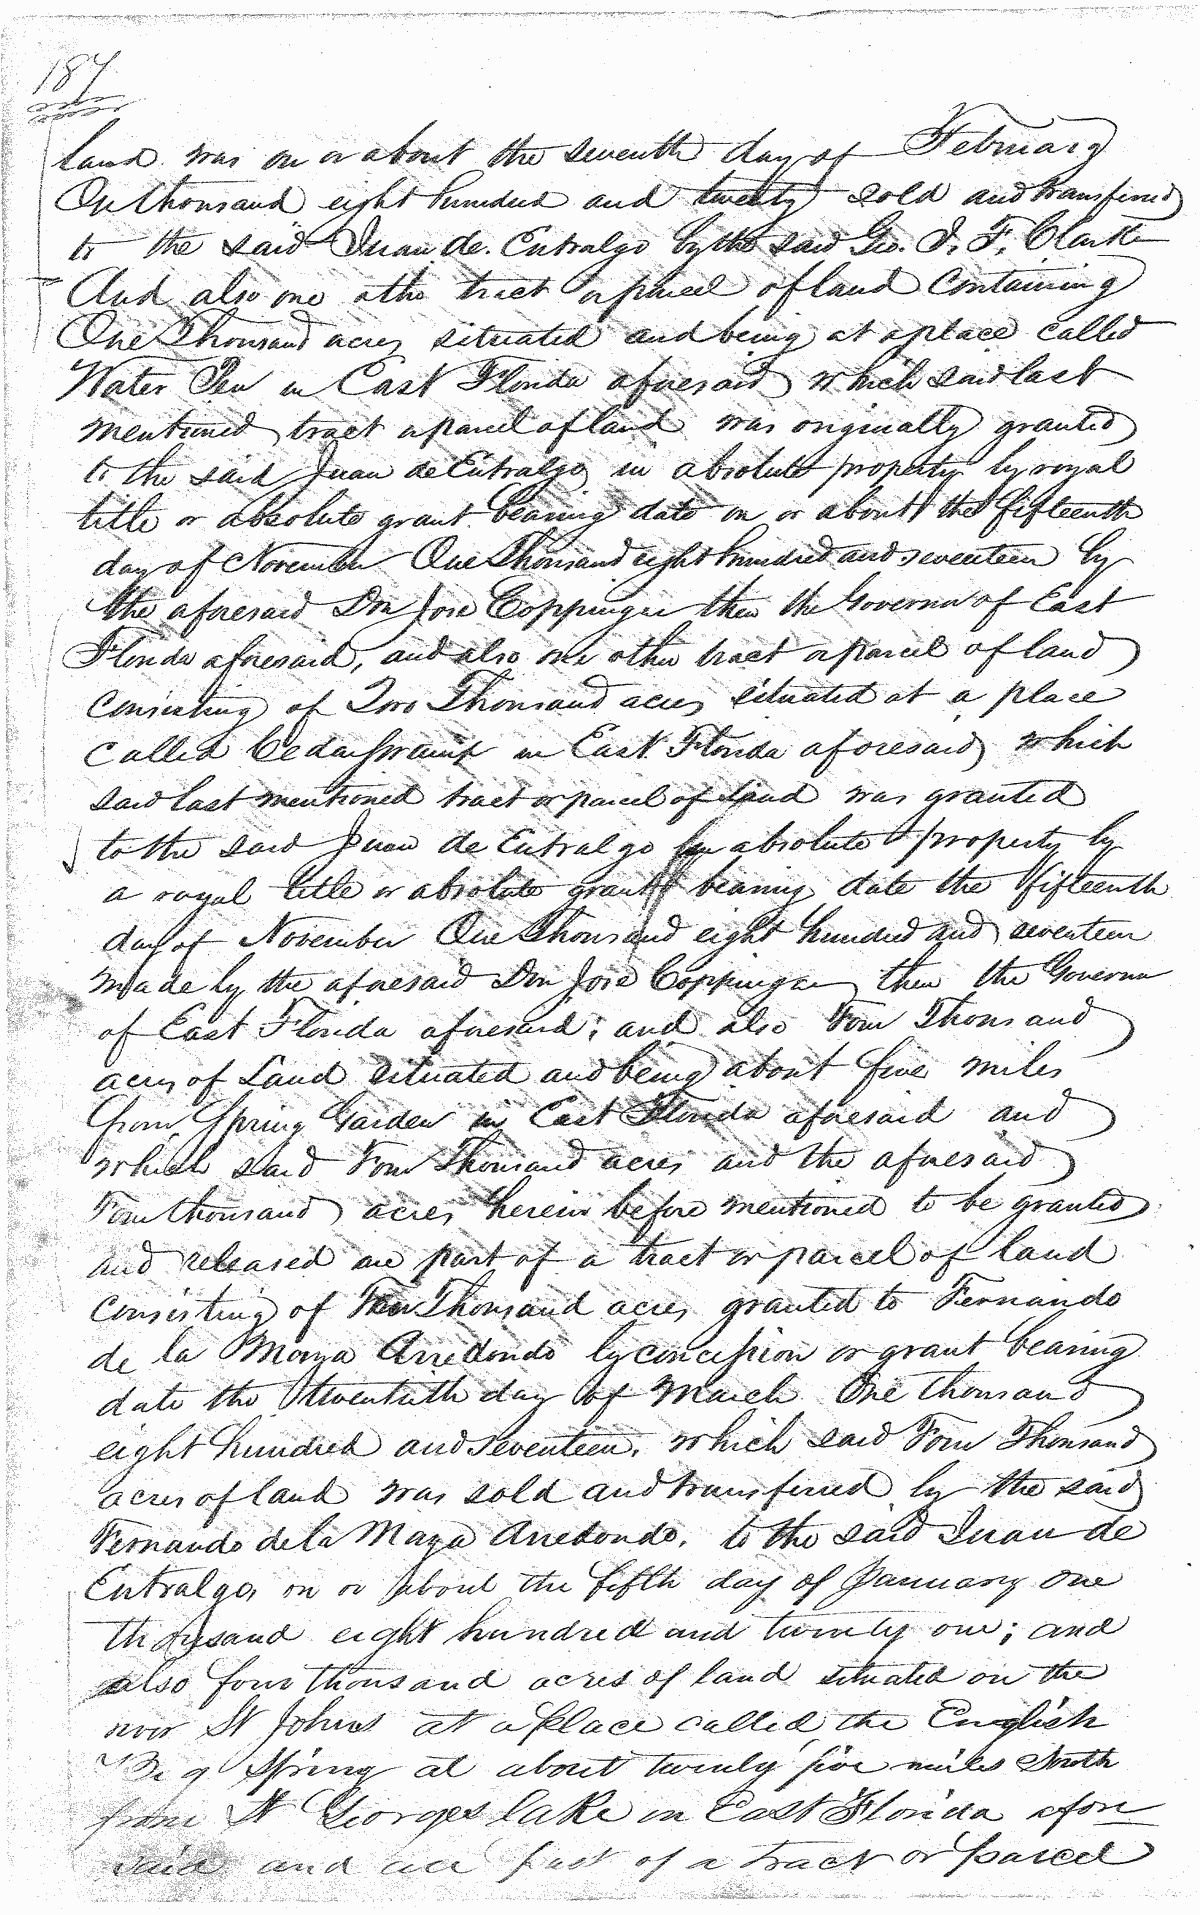 187
land was on or about the seventh day of February
One thousand eight hundred and twenty sold and transferred
to the said Juan de Entralgo by the said Geo. J. F. Clarke
And also one other tract or parcel of land Containing
One Thousand acres situated and being at a place called
Water Pen in East Florida aforesaid which said last
mentioned tract or parcel of land was originally granted
to the said Juan de Entralgo in absolute property by royal
title or absolute grant bearing date on or about the fifteenth
day of November One Thousand eight hundred and seventeen by
the aforesaid Don Jose Coppinger then the Governor of East
Florida aforesaid, and also one other tract or parcel of land
Consisting of Two Thousand acres situated at a place
called Cedar Swamp in East Florida aforesaid which
said last mentioned tract or parcel of land was granted
to the said Juan de Entralgo in absolute property by
a royal title or absolute grant bearing date the fifteenth
day of November One Thousand eight hundred and seventeen
made by the aforesaid Don Jose Coppinger then the Governor
of East Florida aforesaid; and also Four Thousand
acres of Land situated and being about five miles
from Spring Garden in East Florida aforesaid and
which said Four Thousand acres and the aforesaid
Four thousand acres herein before mentioned to be granted
and released are part of a tract or parcel of land
Consisting of Ten Thousand acres granted to Fernando
de la Maza Arredondo by concession or grant bearing
date the twentieth day of March One thousand
eight hundred and seventeen, which said Four Thousand
acres of land was sold and transferred by the said
Fernando de la Maza Arredondo, to the said Juan de
Entralgo, on or about the fifth day of January one
thousand eight hundred and twenty one; and
also four thousand acres of land situated on the
river St Johns at a place called the English
Big Spring at about twenty five miles South
from St Georges lake in East Florida afore
said and are part of a tract or parcel